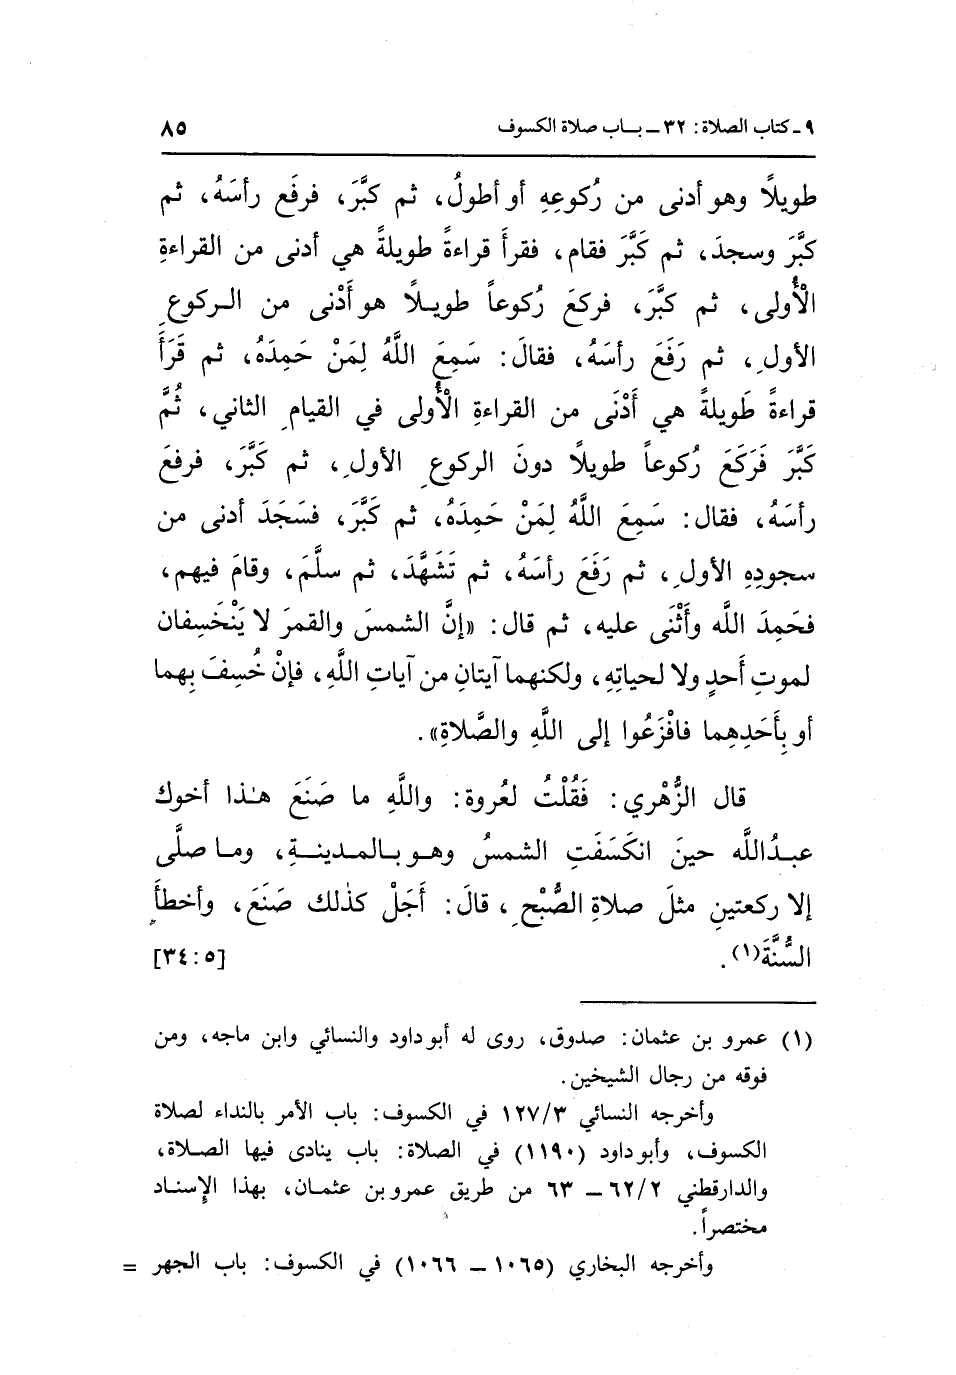 ٩ - كتاب الصلاة: ٣٢ - باب صلاة الكسوف ٨٥
طويلًا وهو أدنى من رُكوعِهِ أو أطولُ، ثم كبَّرَ، فرفَع رأسَهُ، ثم
كبَّرَ وسجدَ، ثم كَبَّرَ فقام، فقرأَ قراءةً طويلةً هي أدنى من القراءةِ
الْأُولى، ثم كبَّرَ، فركعَ رُكوعاً طويلًا هو أدْنى من الركوعِ
الأولِ، ثم رَفَعَ رأسَهُ، فقالَ: سَمِعَ اللَّهُ لِمَنْ حَمِدَهُ، ثم قَرَأَ
قراءةً طَويلةً هي أَدْنَى من القراءةِ الْأُولى في القيامِ الثاني، ثُمَّ
كَبَّرَ فَرَكَعَ رُكوعاً طويلًا دونَ الركوعِ الأولِ، ثم كَبَّرَ، فرفعَ
رأسَهُ، فقال: سَمِعَ اللَّهُ لِمَنْ حَمِدَهُ، ثم كَبَّرَ، فسَجَدَ أدنى من
سجودِهِ الأولِ، ثم رَفَعَ رأسَهُ، ثم تَشَهَّدَ، ثم سلَّمَ، وقامَ فيهم،
فحَمِدَ اللَّه وأَثْنَى عليه، ثم قال: «إنَّ الشمسَ والقمرَ لا يَنْخَسِفان
لموتِ أَحدٍ ولا لحياتِهِ، ولكنهما آيتانِ من آياتِ اللَّهِ، فإنْ خُسِفَ بِهما
أو بِأَحَدِهِما فافْزَعُوا إلى اللَّهِ والصَّلاةِ».
قال الزُّهْري: فَقُلْتُ لعُروة: واللَّهِ ما صَنَعَ هٰذا أخوك
عبدُاللَّه حينَ انكَسَفَتِ الشمسُ وهو بالمدينةِ، وما صلَّى
إلا ركعتينِ مثلَ صلاةِ الصُّبْحِ، قالَ: أَجَلْ كذٰلك صَنَعَ، وأخطأَ
السُّنَّةَ(١). [٣٤:٥]
(١) عمرو بن عثمان: صدوق، روى له أبو داود والنسائي وابن ماجه، ومن
فوقه من رجال الشيخين.
وأخرجه النسائي ١٢٧/٣ في الكسوف: باب الأمر بالنداء لصلاة
الكسوف، وأبو داود (١١٩٠) في الصلاة: باب ينادى فيها الصلاة،
والدارقطني ٦٢/٢ - ٦٣ من طريق عمرو بن عثمان، بهذا الإسناد
مختصراً.
وأخرجه البخاري (١٠٦٥ - ١٠٦٦) في الكسوف: باب الجهر =